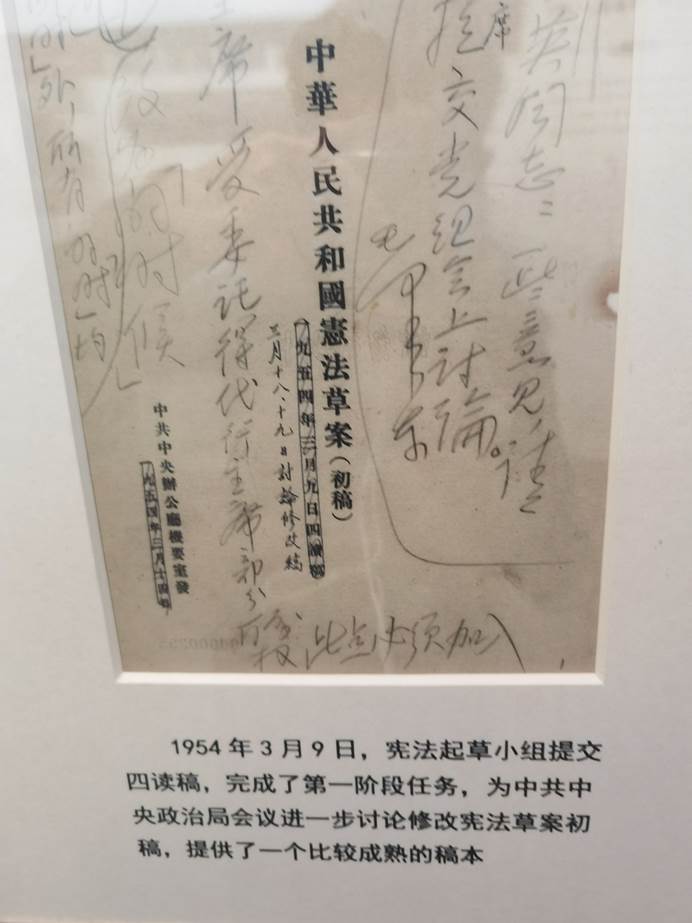 英同志：一些意见，请
席
提交党组会上讨论。
毛泽东
中華人民共和國憲法草案（初稿）
一九五四年三月九日四讀稿
三月十八、十九日討論修改稿
主席受委託得代行主席部分
职权
此点必须加入
中共中央辦公廳機要室發
一九五四年三月十四日
时候
1954年3月9日，宪法起草小组提交
四读稿，完成了第一阶段任务，为中共中
央政治局会议进一步讨论修改宪法草案初
稿，提供了一个比较成熟的稿本